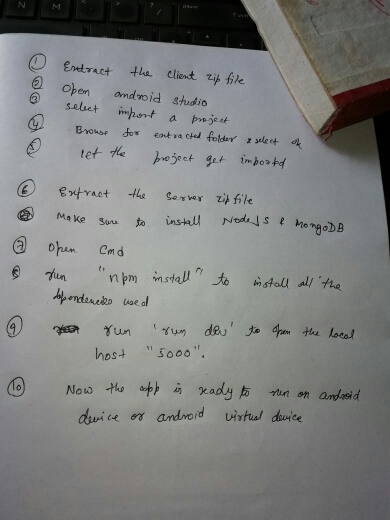 ① Extract the client zip file
② Open android studio
③ select import a project
④ Browse for extracted folder & select ok
⑤ let the project get importd
⑥ Extract the server zip file
Make sure to install NodeJS & MongoDB
⑦ Open Cmd
⑧ run "npm install" to install all the
dependencies used
⑨ run 'run dev' to open the local
host "5000".
⑩ Now the app is ready to run on android
device or android virtual device